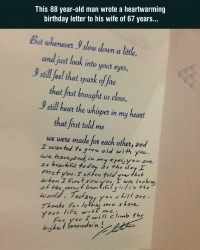 This 88 year-old man wrote a heartwarming
birthday letter to his wife of 67 years...
But whenever I slow down a little,
and just look into your eyes,
I still feel that spark of fire
that first brought us close,
I still hear the whisper in my heart
that first told me
we were made for each other, and
I wanted to grow old with you.
we have, and in my eyes, you are
as beautiful today as the day I
met you. I often told you that
when I first saw you, I was looking
at the most beautiful girl in the
world. Today, you still are.
Thanks for letting me share
your life with me.
For you I will climb the
highest